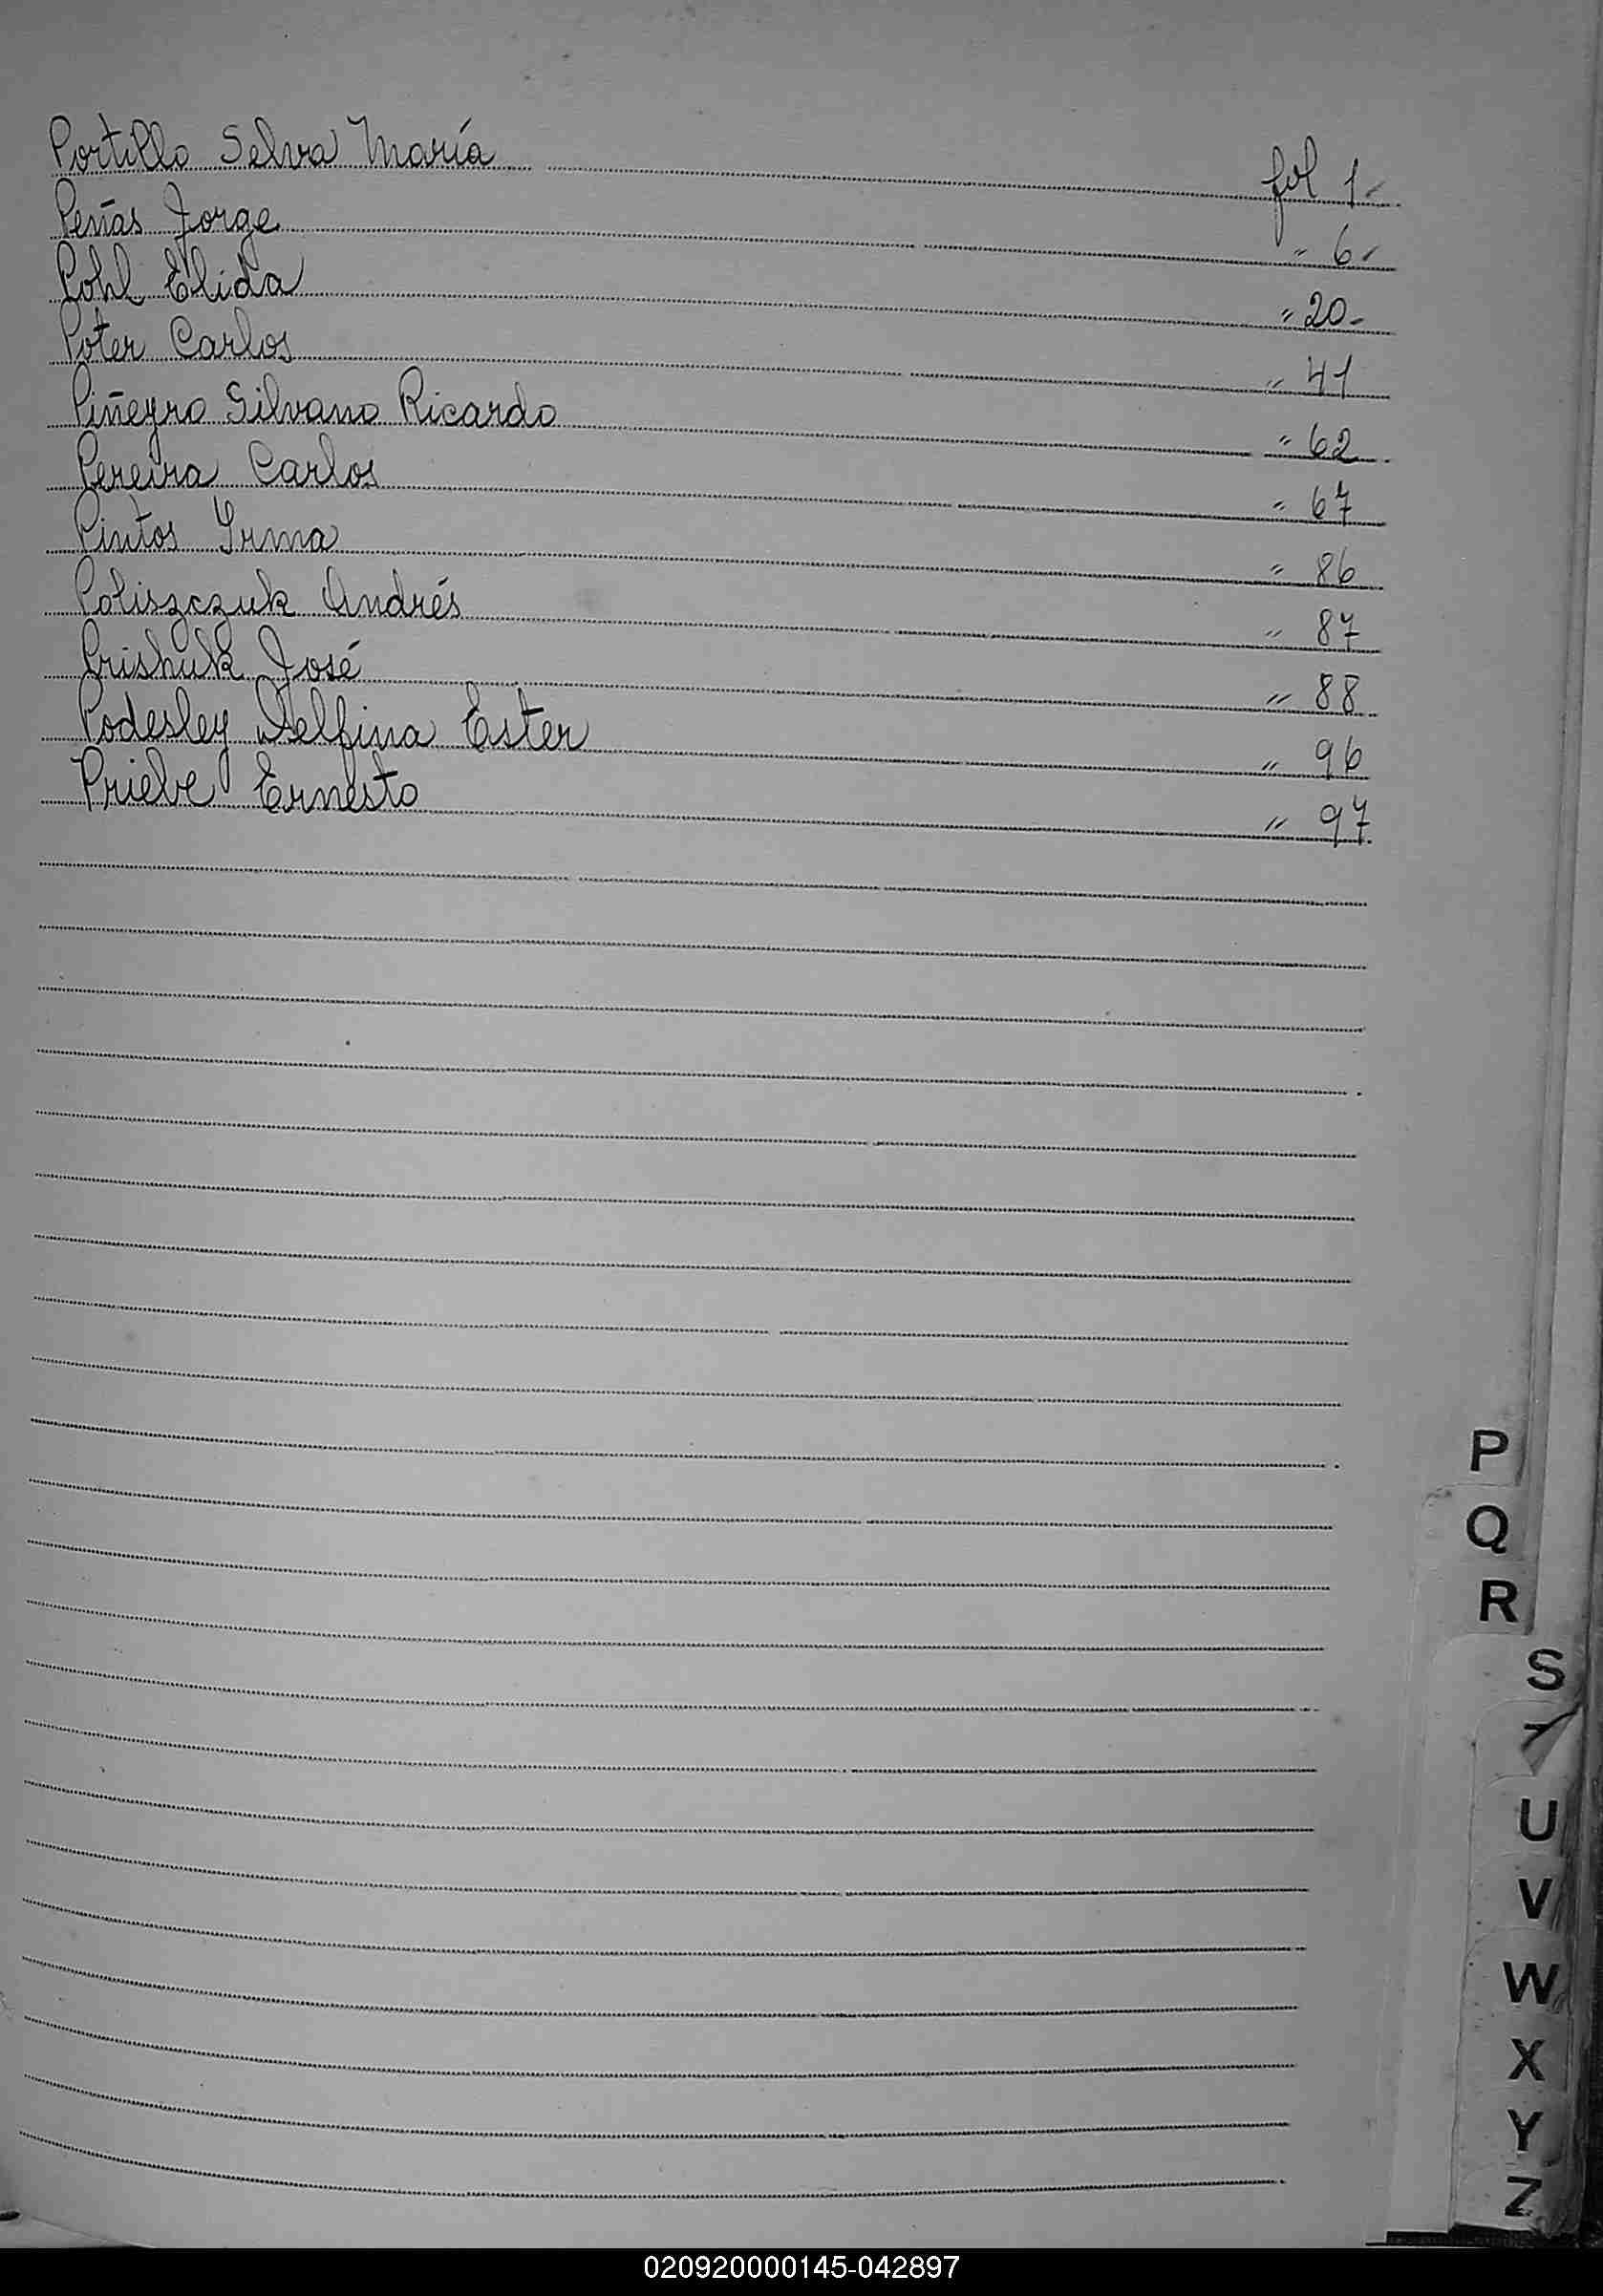 Portillo Selva María fol 1-
Peñas Jorge " 6-
Pohl Elida " 20-
Poter Carlos " 41
Piñeyro Silvano Ricardo " 62
Pereira Carlos " 67
Pintos Irma " 86
Poliszczuk Andrés " 87
Prishuk José " 88
Podesley Delfina Ester " 96
Priebe Ernesto " 97
P
Q
R
S
U
V
W
X
Y
Z
020920000145-042897